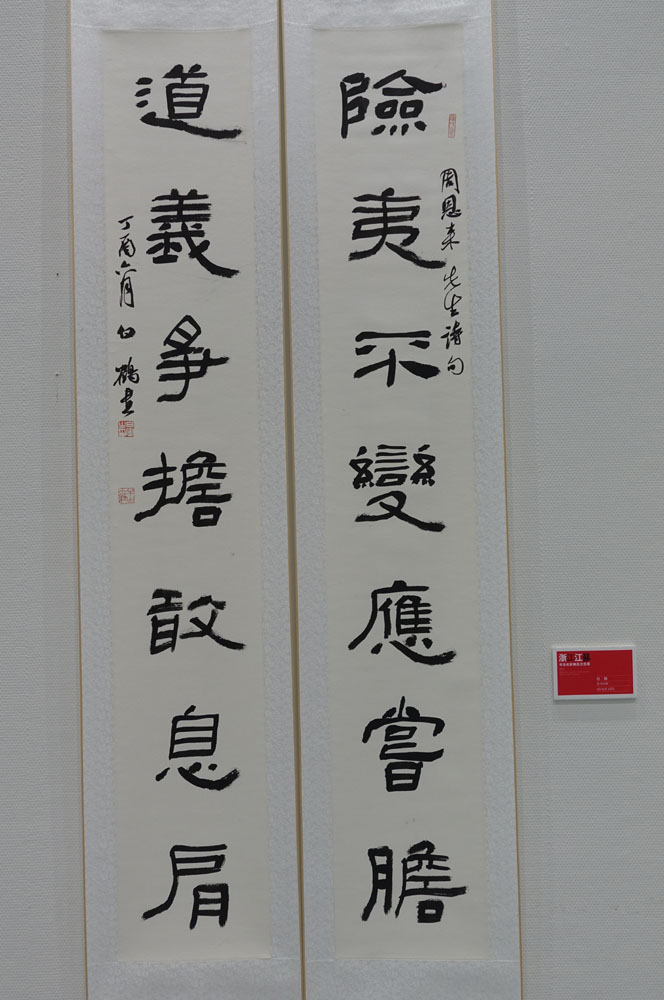 險夷不變應嘗膽
周恩来先生詩句
道義爭擔敢息肩
丁酉六月白鶴書
浙江